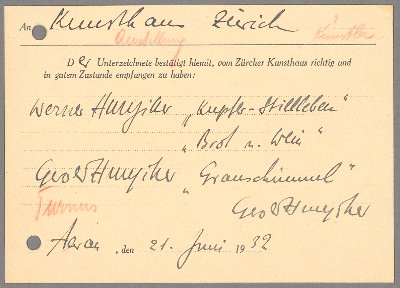 An Kunsthaus Zürich
Ausstellung Künstler
Der Unterzeichnete bestätigt hiemit, vom Zürcher Kunsthaus richtig und
in gutem Zustande empfangen zu haben:
Werner Hunziker „Kupfer-Stillleben"
„Brot u. Wein"
Gerold Hunziker „Grauschimmel"
Turnus
Gerold Hunziker
Aarau, den 21. Juni 1932